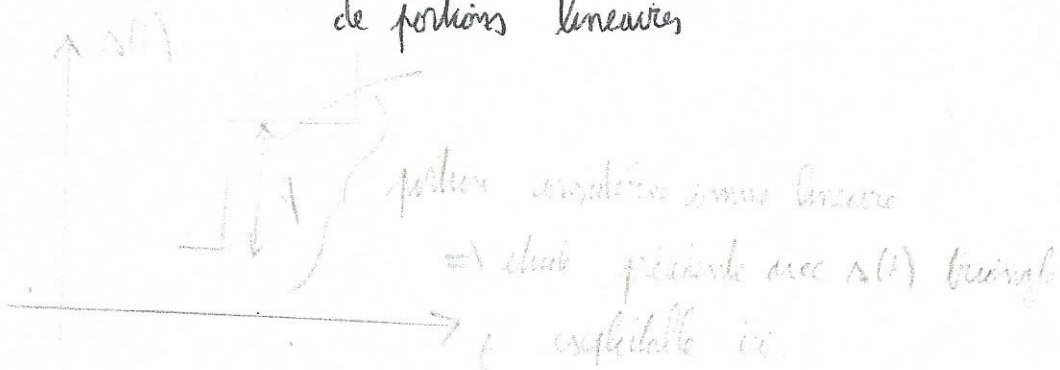 de portions lineaires
s(t)
portion considérée comme lineaire
=> etude précédente avec s(t) triangle
t exploitable ici